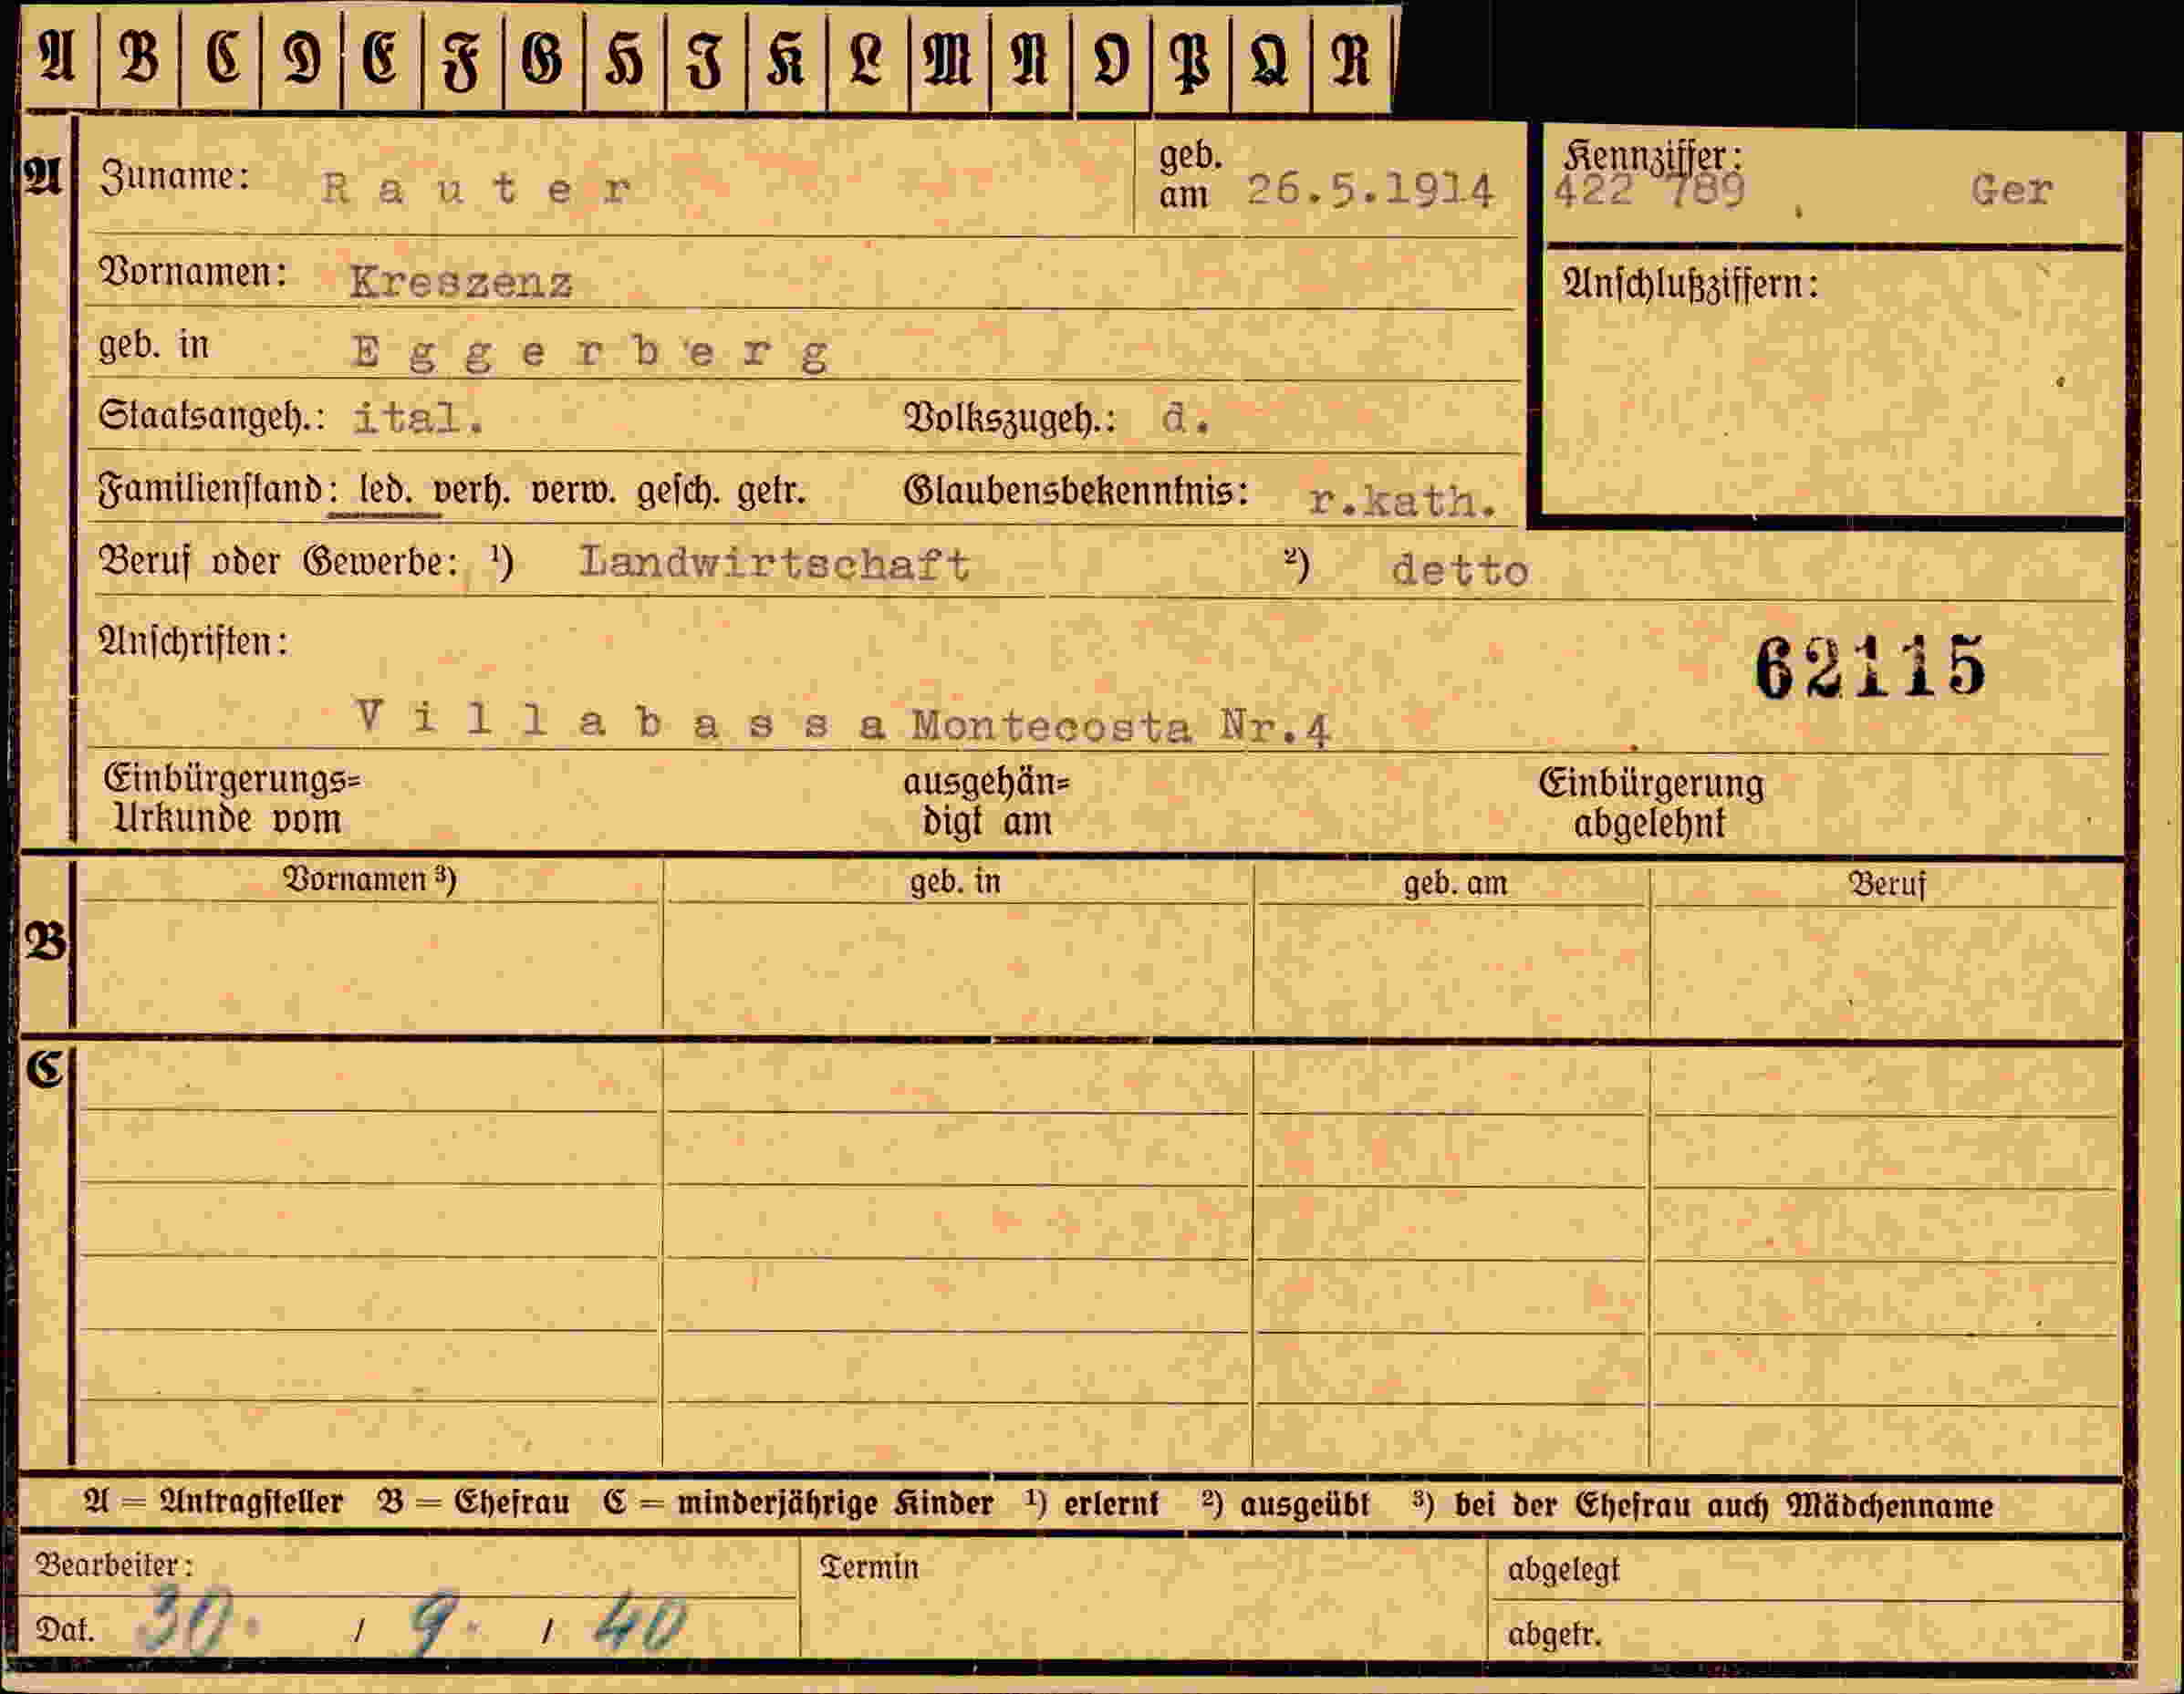 A B C D E F G H I K L M N O P Q R
A
Zuname: Rauter
geb. am 26.5.1914
Kennziffer:
422 789 Ger
Vornamen: Kreszenz
Anschlußziffern:
geb. in Eggerberg
Staatsangeh.: ital. Volkszugeh.: d.
Familienstand: led. verh. verw. gesch. getr. Glaubensbekenntnis: r.kath.
Beruf oder Gewerbe: ¹) Landwirtschaft ²) detto
Anschriften:
62115
Villabassa Montecosta Nr.4
Einbürgerungs= ausgehän= Einbürgerung
Urkunde vom digt am abgelehnt
Vornamen ³) geb. in geb. am Beruf
B
C
A = Antragsteller B = Ehefrau C = minderjährige Kinder ¹) erlernt ²) ausgeübt ³) bei der Ehefrau auch Mädchenname
Bearbeiter: Termin abgelegt
Dat. 30. / 9. / 40 abgetr.